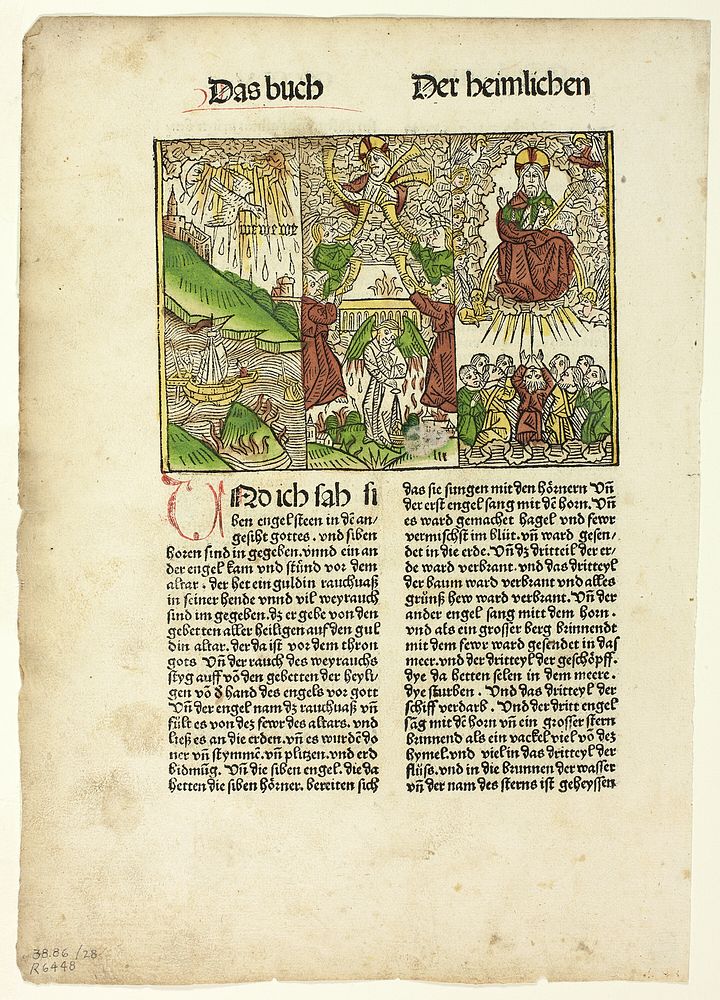 Das buch
Der heimlichen
we we we
UNd ich sah si
ben engel steen in dē an-
gesiht gottes. vnd siben
horen sind in gegeben. vnnd ein an
der engel kam vnd stůnd vor dem
altar. der het ein guldin rauchuaß
in seiner hende vnnd vil weyrauch
sind im gegeben. dz er gebe von den
gebetten aller heiligen auf den gul
din altar. der da ist vor dem thron
gots Vn̄ der rauch des weyrauchs
styg auff võ den gebetten der heyli-
gen võ d hand des engels vor gott
Vn̄ der engel nam dz rauchuaß vn̄
fült es von dez fewr des altars. vnd
ließ es an die erden. vn̄ es wurdē do
ner vn̄ stymmē. vn̄ plitzen. vnd erd
bidmūg. Vn̄ die siben engel. die da
hetten die siben hörner. bereiten sich
das sie sungen mit den hörnern Vn̄
der erst engel sang mit dē horn. Vn̄
es ward gemachet hagel vnd fewr
vermischst im blüt. vn̄ ward gesen/
det in die erde. Vn̄ dz dritteil der er/
de ward verbrant. vnd das dritteyl
der baum ward verbrant vnd alles
grünß hew ward verbrant. Vn̄ der
ander engel sang mitt dem horn.
vnd als ein grosser berg brinnendt
mit dem fewr ward gesendet in das
meer. vnd der dritteyl der geschöpff.
dye da hetten selen in dem meere.
dye sturben. Vnd das dritteyl der
schiff verdarb. Vnd der dritt engel
sāg mit dē horn vn̄ ein grosser stern
brinnend als ein vackel viel võ dez
hymel. vnd viel in das dritteyl der
flüß. vnd in die brunnen der wasser
vn̄ der nam des sterns ist geheyssen
38.86 / 28
R6448